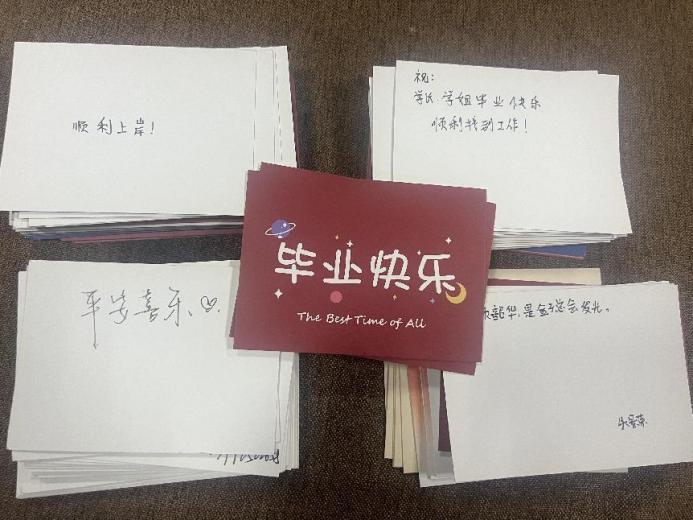 顺利上岸!
祝:
学长、学姐毕业快乐
顺利找到工作!
毕业快乐
The Best Time of All
平安喜乐♡.
韶华,是金子总会发光。